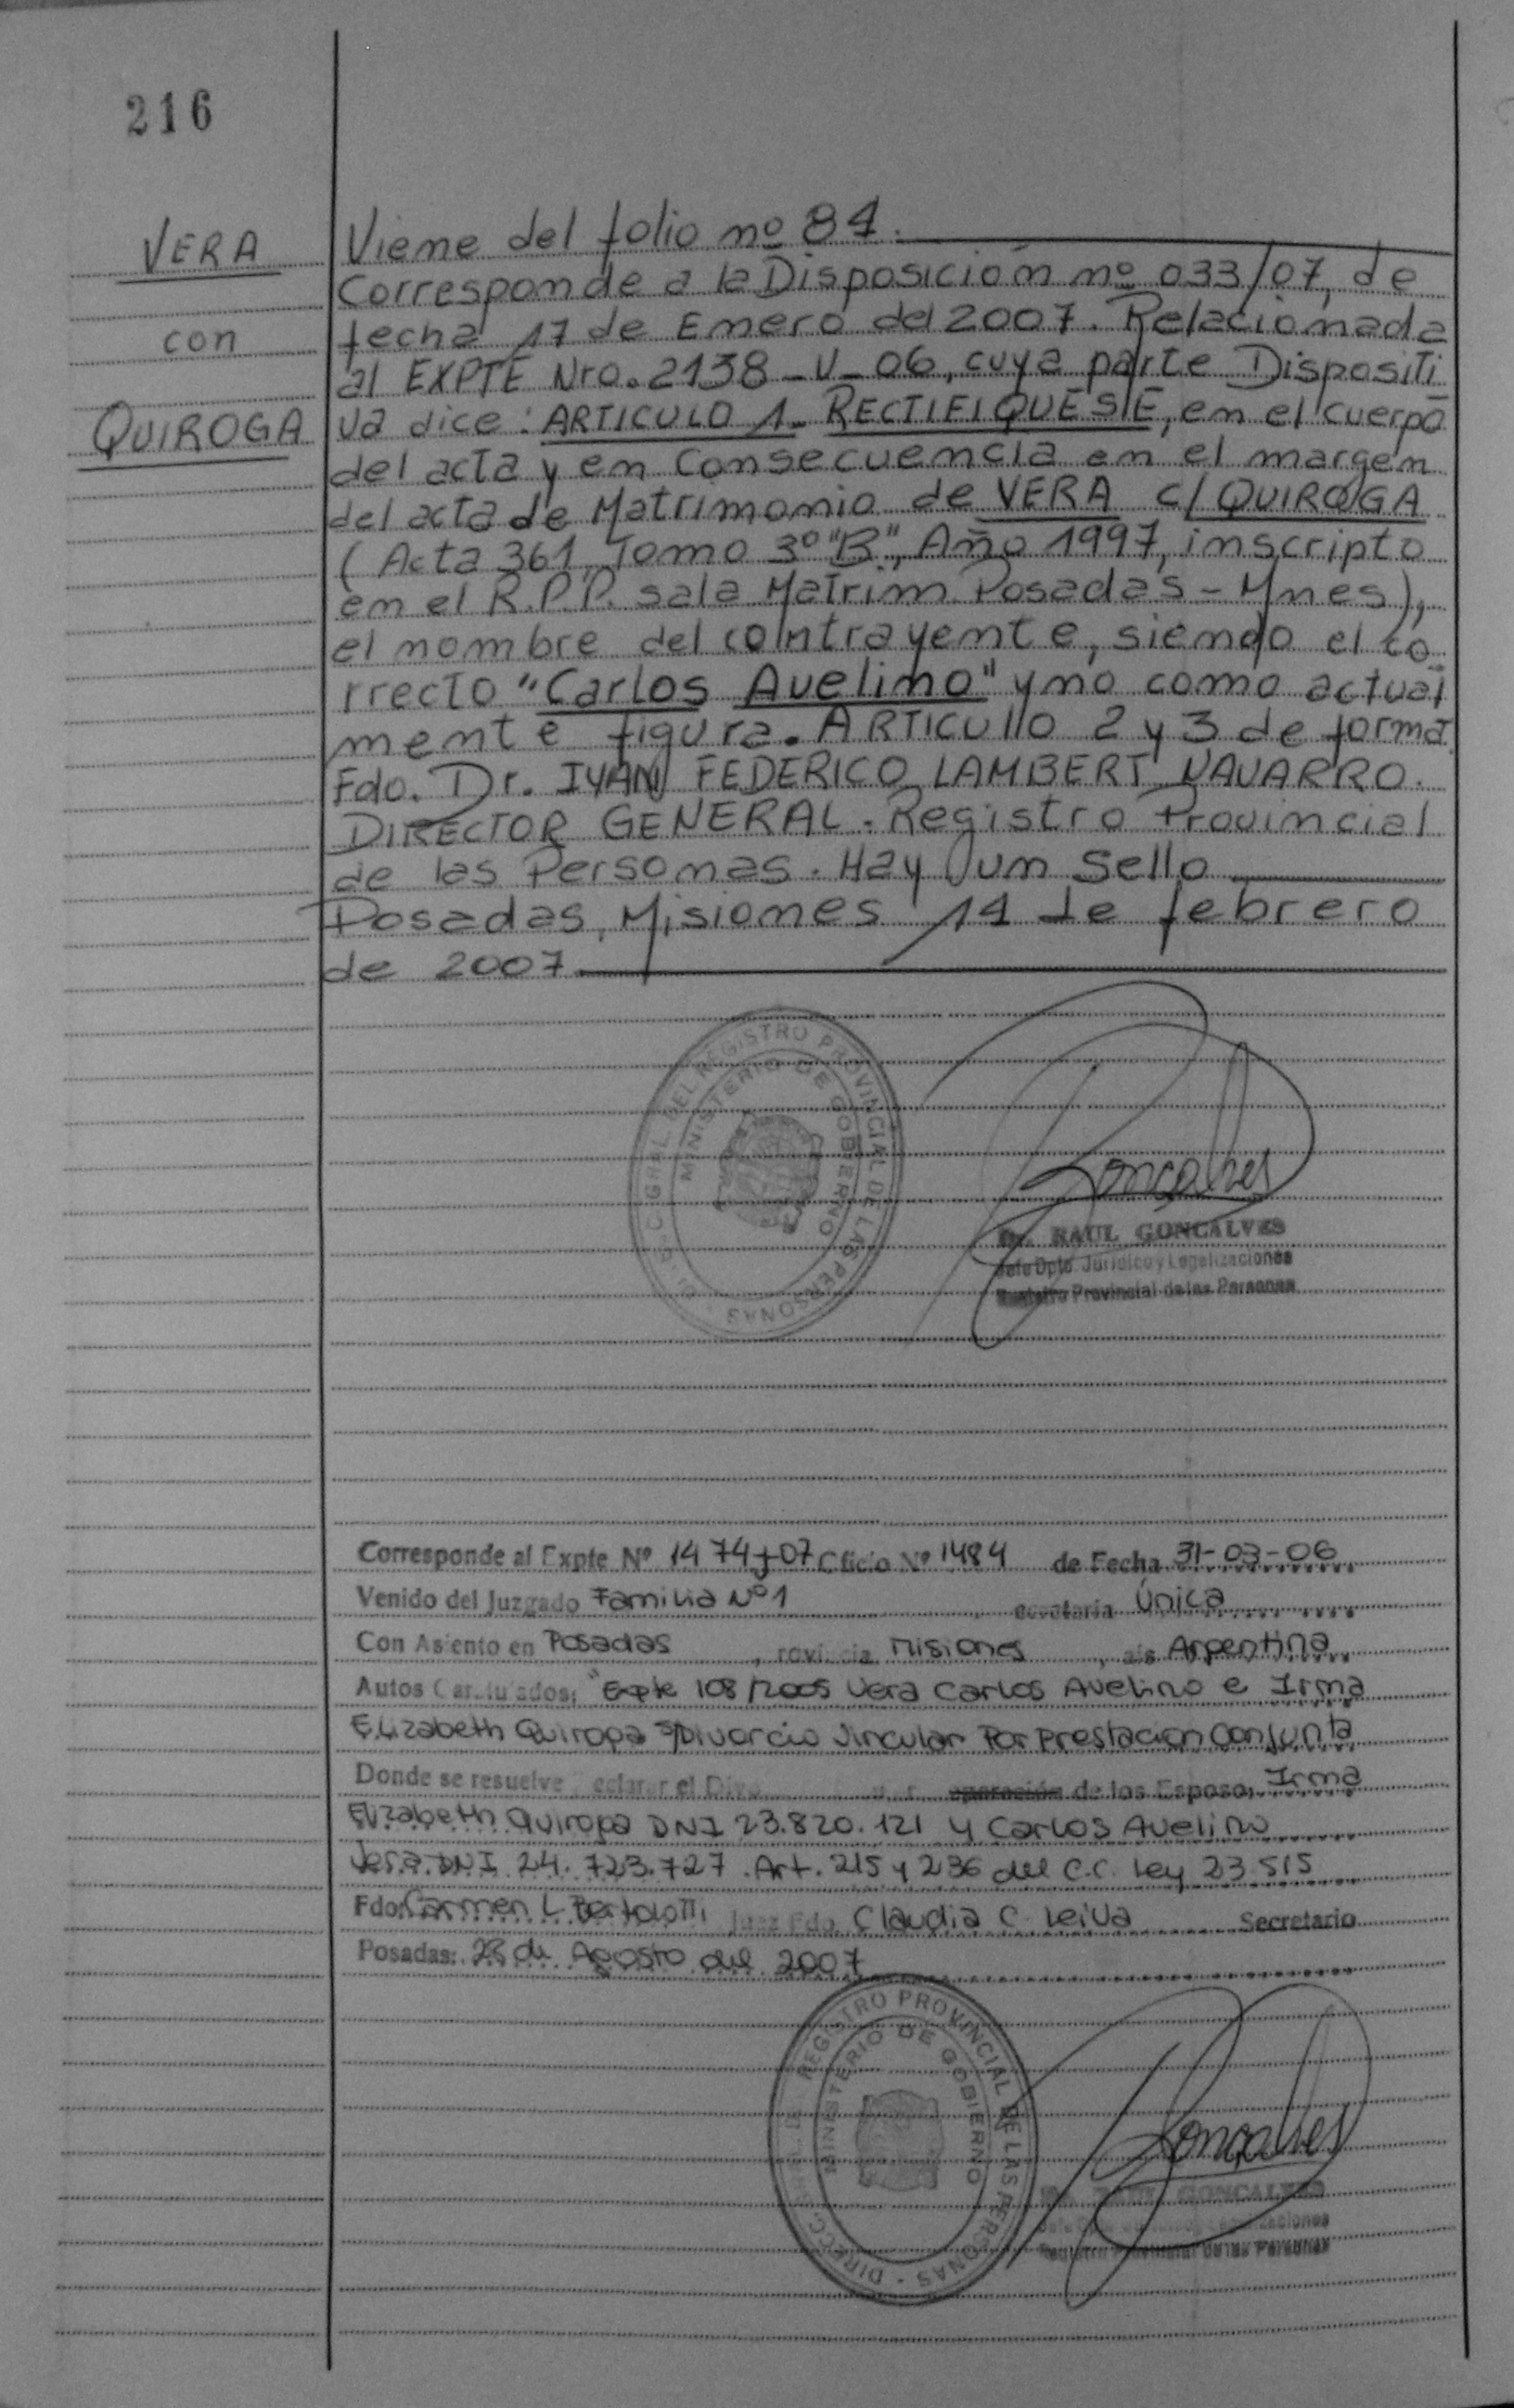 216
VERA
con
QUIROGA
Viene del folio nº 84.
Corresponde a la Disposición nº 033/07, de
fecha 17 de Enero del 2007. Relacionada
al EXPTE Nro. 2138-V-06, cuya parte Dispositi
va dice: ARTICULO 1. RECTIFIQUESE, en el cuerpo
del acta y en consecuencia en el margen
del acta de Matrimonio de VERA c/ QUIROGA
(Acta 361, Tomo 3º "B", Año 1997, inscripto
en el R.P.P. sala Matrim. Posadas - Mnes),
el nombre del contrayente, siendo el co
rrecto "Carlos Avelino" y no como actual
mente figura. ARTICUllO 2 y 3 de forma.
Fdo. Dr. IVAN FEDERICO LAMBERT NAVARRO.
DIRECTOR GENERAL. Registro Provincial
de las Personas. Hay un sello
Posadas, Misiones 14 de febrero
de 2007
GRAL. DEL REGISTRO PROVINCIAL DE LAS PERSONAS
MINISTERIO DE GOBIERNO
Goncalves
Dr. RAUL GONCALVES
Jefe Dpto. Jurídico y Legalizaciones
Registro Provincial de las Personas
Corresponde al Expte Nº 1474-J-07 Oficio Nº 1484 de Fecha 31-03-06
Venido del Juzgado Familia Nº 1 ecretaría Única
Con Asiento en Posadas, rovincia Misiones, aís Argentina
Autos Caratulados: "Expte 108/2005 Vera Carlos Avelino e Irma
Elizabeth Quiroga s/Divorcio Vincular Por Prestacion Conjunta
Donde se resuelve eclarar el Divo de los Esposos Irma
Elizabeth Quiroga DNI 23.820.121 y Carlos Avelino
Vera DNI 24.723.727. Art. 215 y 236 del C.C. Ley 23.515
Fdo: Carmen L Bertolotti Juez Fdo. Claudia C. Leiva Secretario
Posadas: 28 de Agosto del 2007
DIRECC. GRAL. DEL REGISTRO PROVINCIAL DE LAS PERSONAS
MINISTERIO DE GOBIERNO
Goncalves
Dr. RAUL GONCALVES
Registro Provincial de las Personas